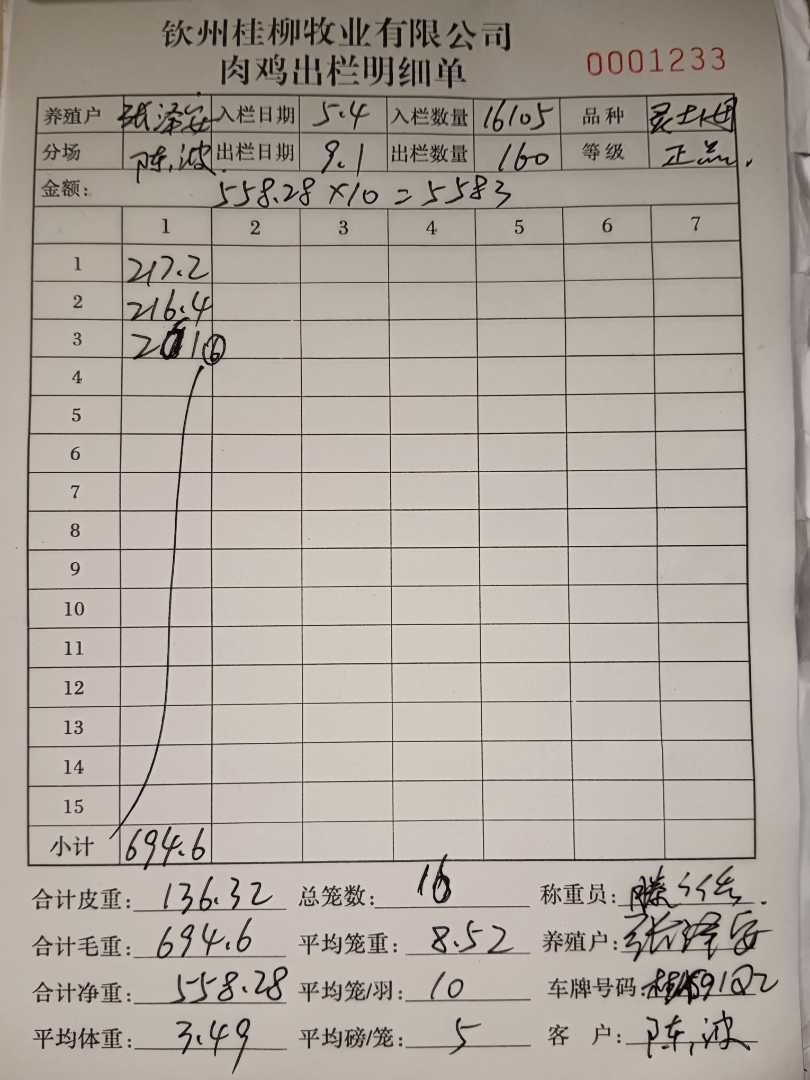 钦州桂柳牧业有限公司
肉鸡出栏明细单 0001233
养殖户 张泽安 入栏日期 5.4 入栏数量 16105 品种
分场 陈波 出栏日期 9.1 出栏数量 160 等级 正品
金额: 558.28×10=5583
1 2 3 4 5 6 7
1 217.2
2 216.4
3
4
5
6
7
8
9
10
11
12
13
14
15
小计 694.6
合计皮重: 136.32 总笼数: 16 称重员:
合计毛重: 694.6 平均笼重: 8.52 养殖户: 张泽安
合计净重: 558.28 平均笼/羽: 10 车牌号码:
平均体重: 3.49 平均磅/笼: 5 客 户: 陈波